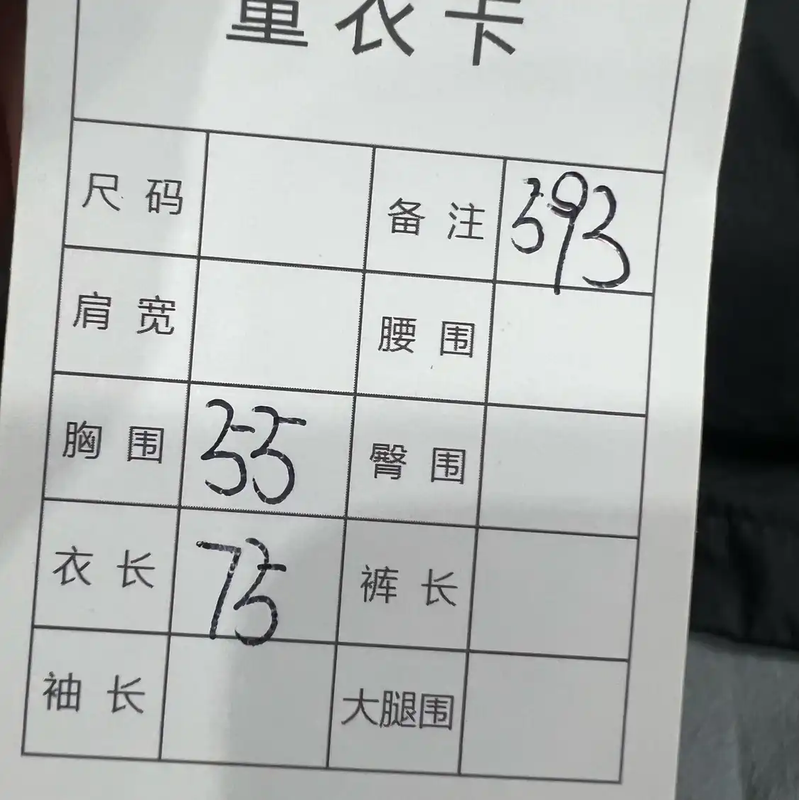 量衣卡
尺码 备注 593
肩宽 腰围
胸围 55 臀围
衣长 75 裤长
袖长 大腿围